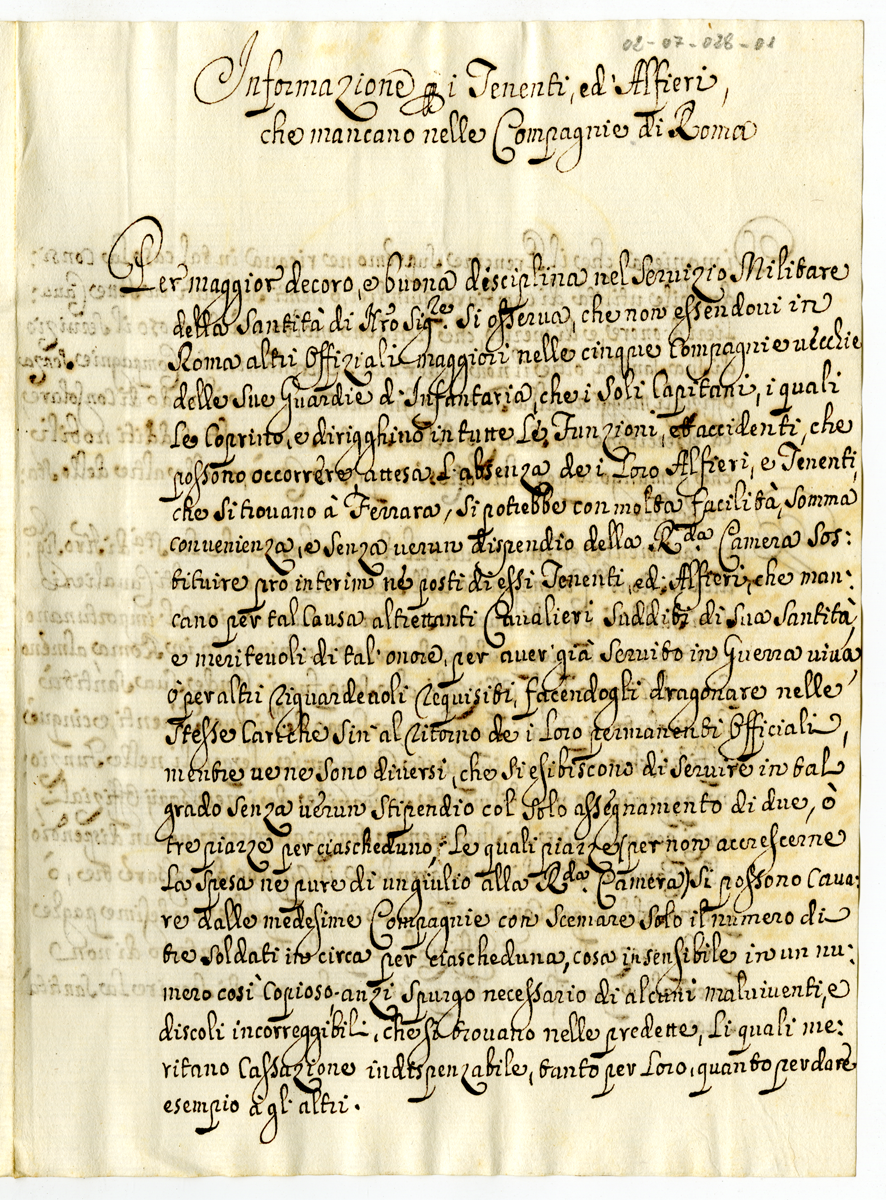 02-07-028-01
Informazione p i Tenenti, ed' Alfieri,
che mancano nelle Compagnie di Roma
Per maggior decoro, e buona disciplina nel Servizio Militare
della Santità di Nro Sigre. Si osserva, che non essendovi in
Roma altri Offiziali maggiori nelle cinque Compagnie vecchie
delle sue Guardie d'Infantaria, che i Soli Capitani, i quali
Le Coprino, e dirigghino in tutte Le Funzioni, et accidenti, che
possono occorrere, attesa L'absenza de i Loro Alfieri, e Tenenti,
che si trovano à Ferrara, Si potrebbe con molta facilità, Somma
convenienza, e Senza verun dispendio della Rda. Camera Sos:
tituire pro interim ne posti di essi Tenenti, ed' Alfieri, che man:
cano per tal Causa altrettanti Cavalieri Sudditi di Sua Santità,
e meritevoli di tal' onore, per aver' già Servito in Guerra viva,
ò per altri riguardevoli requisiti, facendogli dragonare nelle
Stesse Cariche Sin' al ritorno de i Loro permanenti Officiali,
mentre ve ne Sono diversi, che Si esibiscono di Servire in tal
grado Senza verun Stipendio col Solo assegnamento di due, ò
tre piazze per ciascheduno, Le quali piazze (per non accrescerne
La Spesa ne pure di un giulio alla Rda. Camera) Si possono Cava:
re dalle medesime Compagnie con Scemare Solo il numero di
tre Soldati in circa per ciascheduna, cosa insensibile in un nu:
mero così Copioso, anzi Spurgo necessario di alcuni malviventi, e
discoli incorreggibili, che si trovano nelle predette, Li quali me:
ritano Cassazione indispenzabile, tanto per Loro, quanto per dare
esempio à gl' altri.